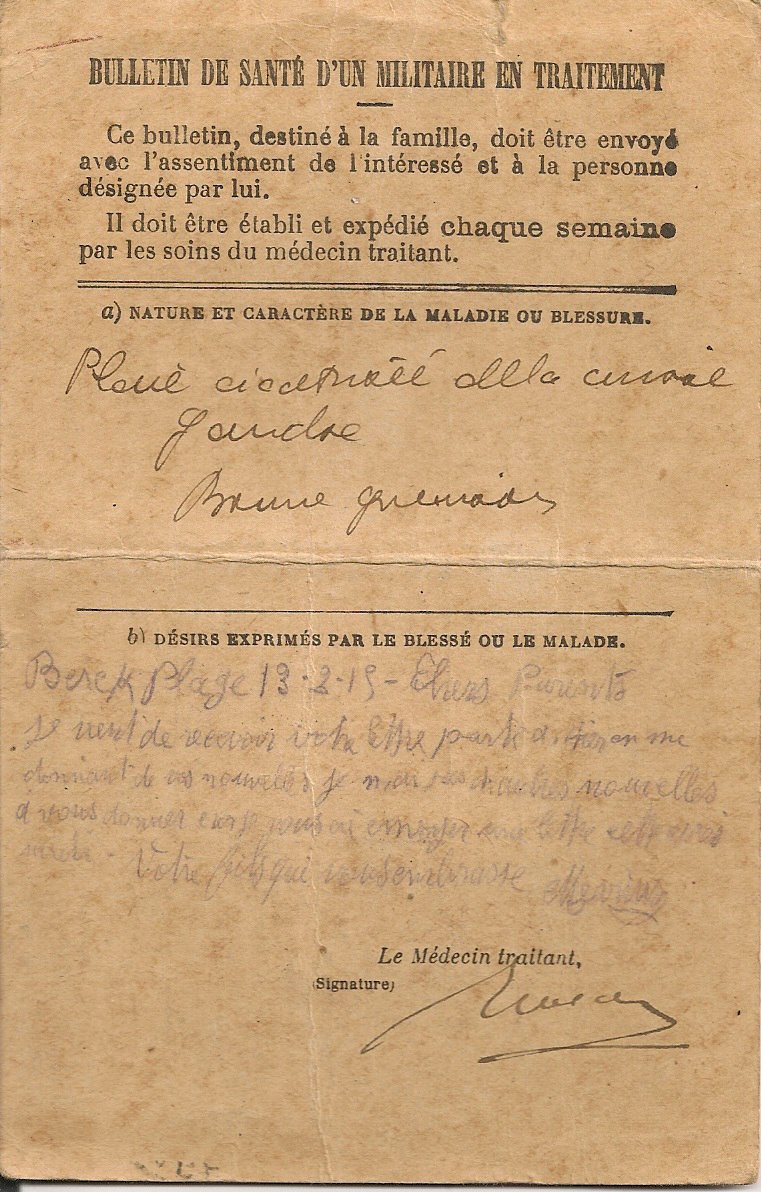 BULLETIN DE SANTÉ D'UN MILITAIRE EN TRAITEMENT
Ce bulletin, destiné à la famille, doit être envoyé
avec l'assentiment de l'intéressé et à la personne
désignée par lui.
Il doit être établi et expédié chaque semaine
par les soins du médecin traitant.
a) NATURE ET CARACTÈRE DE LA MALADIE OU BLESSURE.
Plaie de la cuisse
gauche
Bonne guérison
b) DÉSIRS EXPRIMÉS PAR LE BLESSÉ OU LE MALADE.
Berck Plage 13-2-15 - Chers Parents
Je vient de recevoir votre lettre en me
donnant de vos nouvelles je nouvelles
a vous donner car je vous ai lettre
Votre fils qui vous embrasse
Le Médecin traitant,
(Signature)